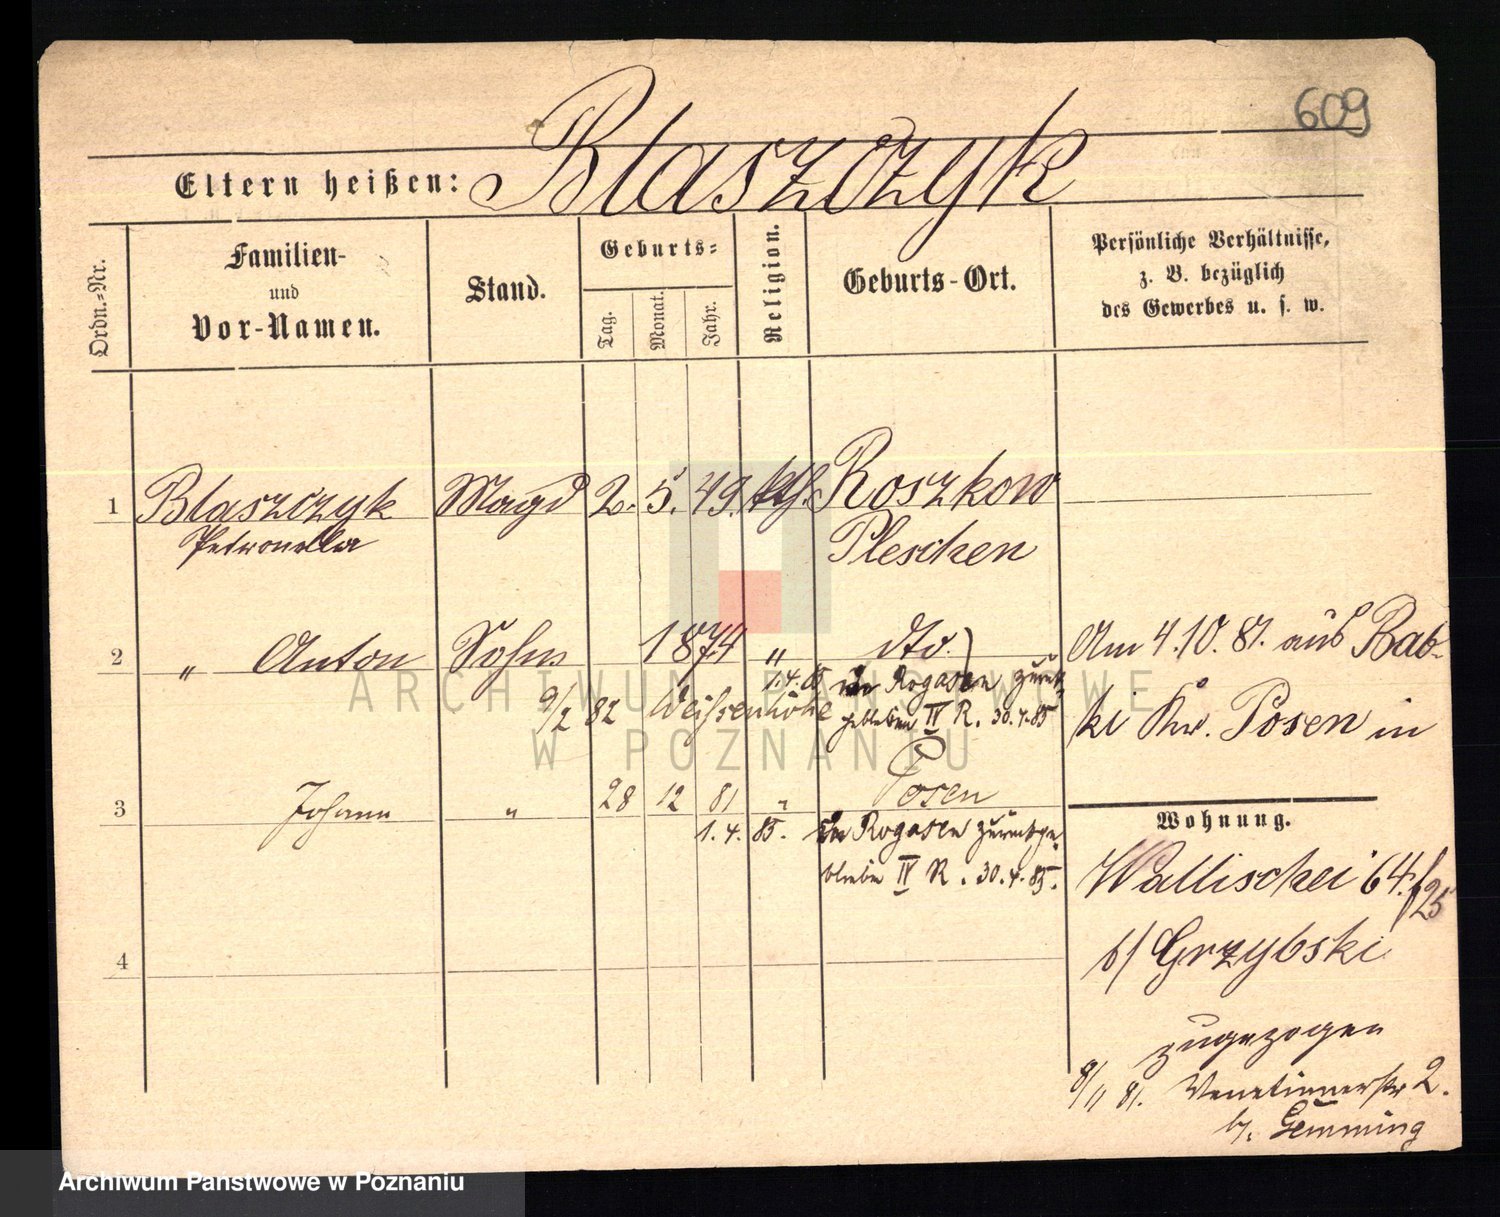 609
Eltern heißen: Blaszczyk
Ordn.=Nr.
Familien-
und
Vor-Namen.
Stand.
Geburts=
Tag.
Monat.
Jahr.
Religion.
Geburts-Ort.
Persönliche Verhältnisse,
z. B. bezüglich
des Gewerbes u. s. w.
1 Blaszczyk Magd 2. 5. 49. kth. Roszkow
Petronella Pleschen
2 " Anton Sohn 1874 " dto. Am 4.10.81. aus Bab-
1.4.85 in Rogasen zurück
9/2 82 Weissenhöhe geblieben IV R. 30.4.85 ki Kr. Posen in
3 Johann " 28 12 81 " Posen
Wohnung.
1. 4. 85. in Rogasen zurückge-
blieben IV R. 30.4.85.
Wallischei 64./25
b/ Grzybski
4
zugezogen
8/11 81. Venetianerstr 2.
b. Gemming
ARCHIWUM PAŃSTWOWE
W POZNANIU
Archiwum Państwowe w Poznaniu